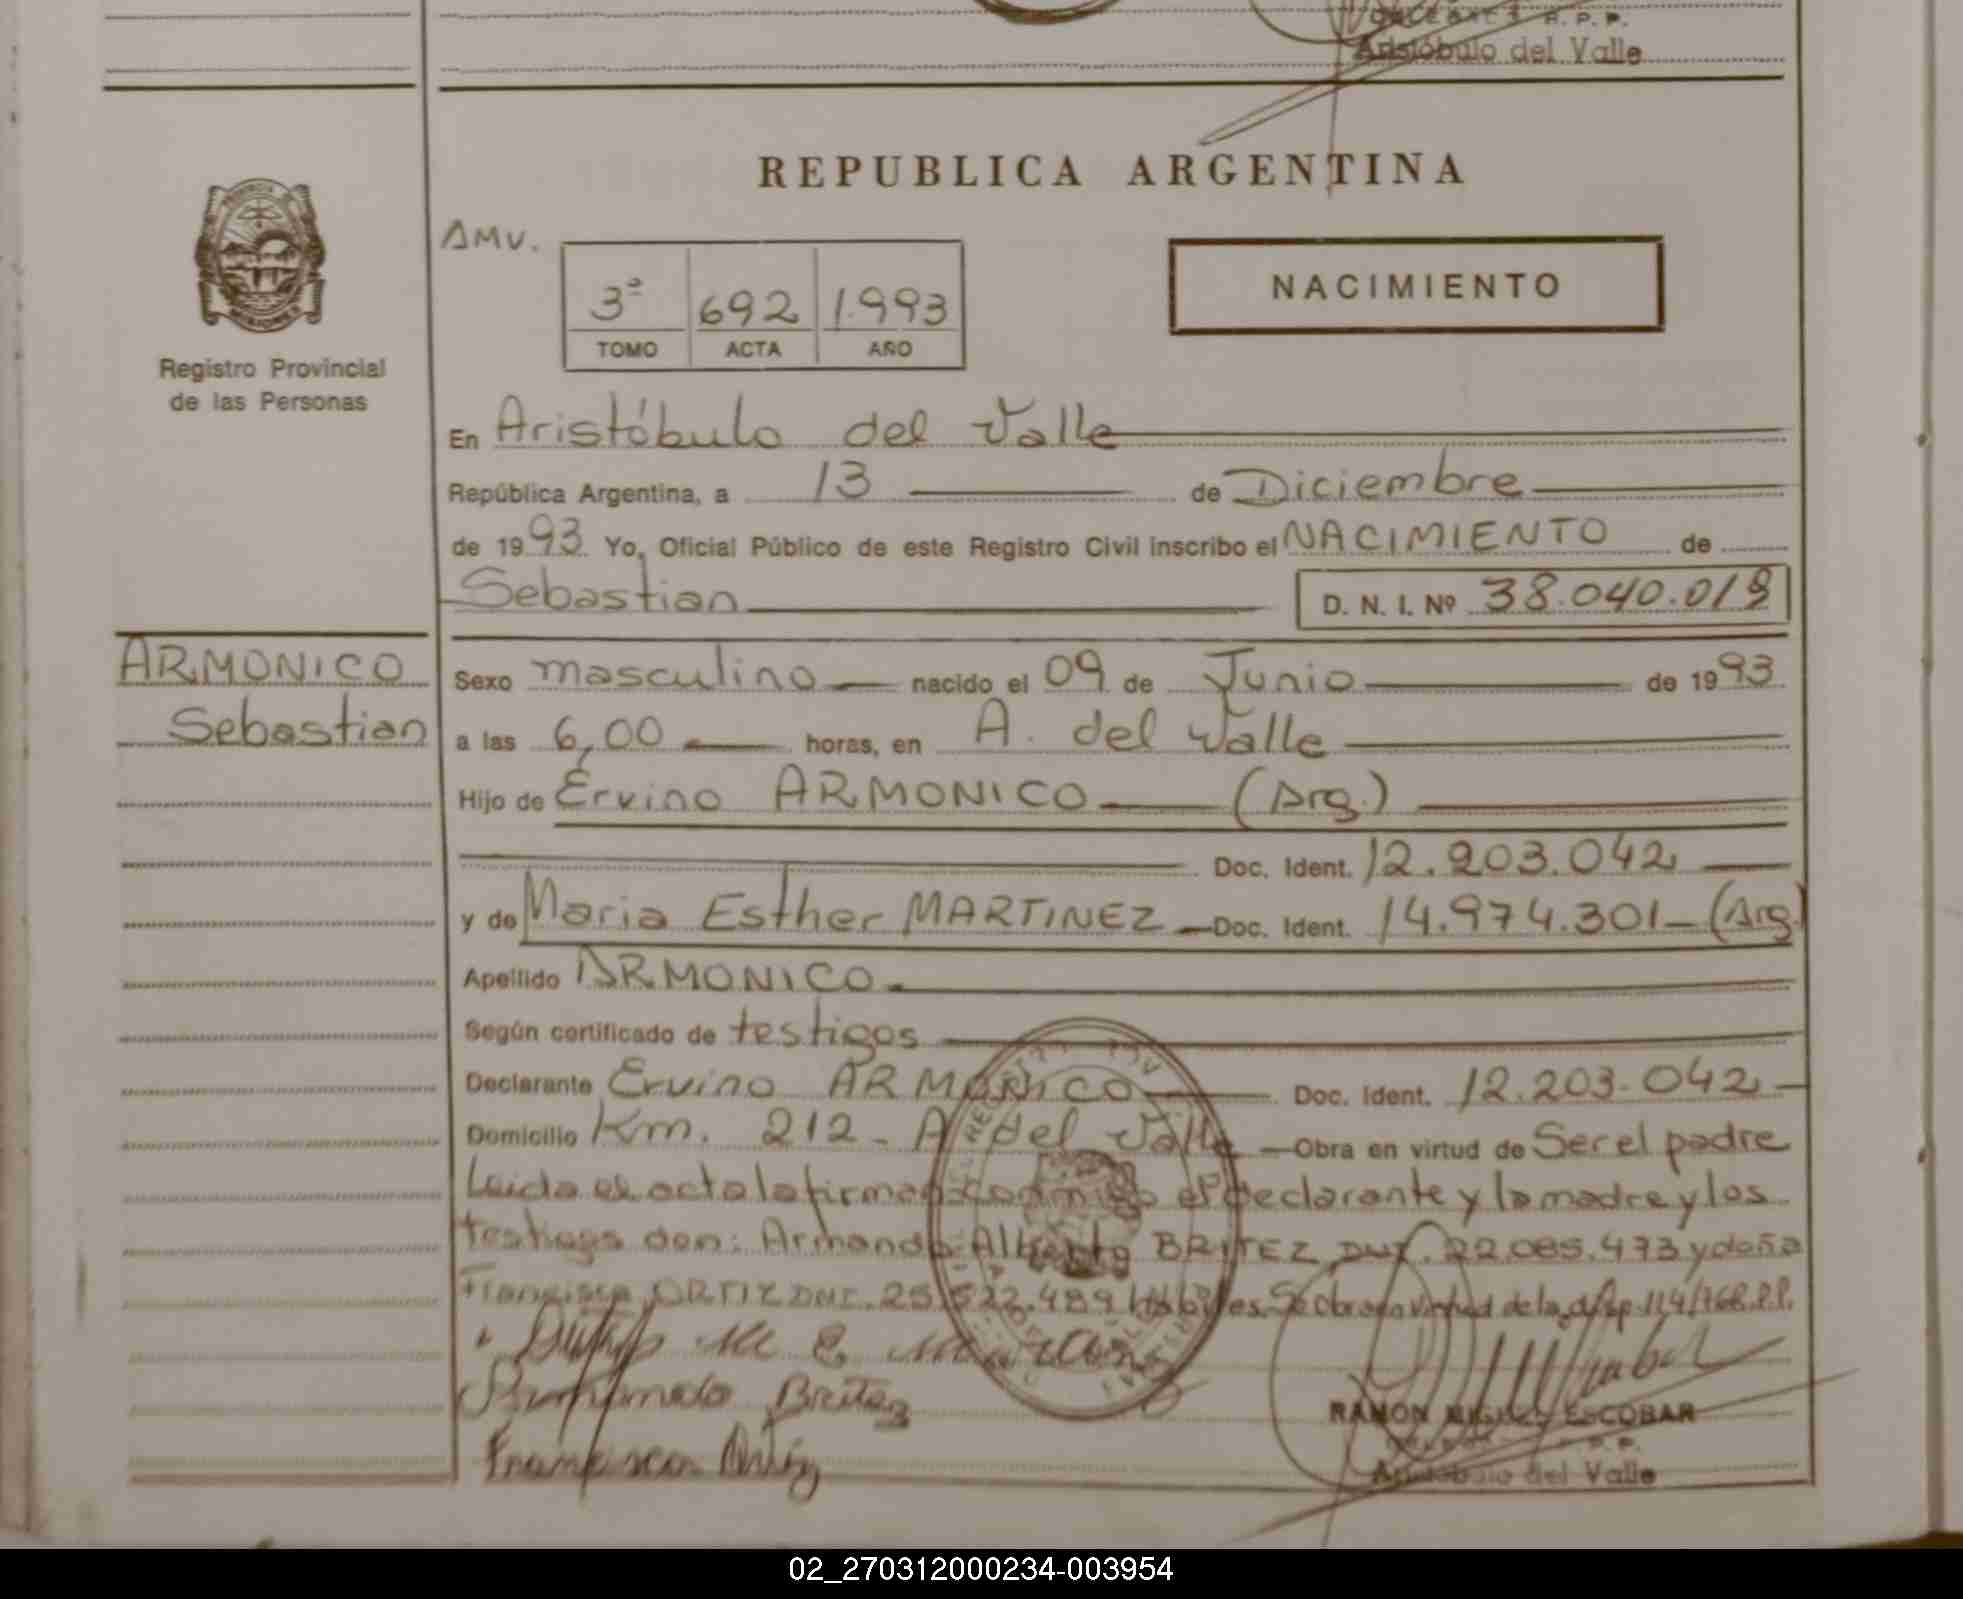 R. P. P.
Aristóbulo del Valle
REPUBLICA ARGENTINA
PROVINCIA DE
MISIONES
Registro Provincial
de las Personas
AMV.
3º 692 1.993
TOMO ACTA AÑO
NACIMIENTO
En Aristóbulo del Valle
República Argentina, a 13 de Diciembre
de 1993. Yo, Oficial Público de este Registro Civil inscribo el NACIMIENTO de
Sebastian D. N. I. Nº 38.040.018
ARMONICO
Sebastian
Sexo masculino nacido el 09 de Junio de 1993
a las 6,00 horas, en A. del Valle
Hijo de Ervino ARMONICO (Arg.)
Doc. Ident. 12.203.042
y de Maria Esther MARTINEZ Doc. Ident. 14.974.301 (Arg.)
Apellido ARMONICO
Según certificado de testigos
Declarante Ervino ARMONICO Doc. Ident. 12.203.042
Domicilio Km. 212 - A del Valle Obra en virtud de Ser el padre
Leida el acta la firman conmigo el declarante y la madre y los
testigos don: Armando Alberto BRITEZ DNI. 22.085.473 y doña
Francisca ORTIZ DNI. 25.522.489 Habiles. Se obra en virtud de la disp. 114/76 R.P.P.
Armando Britez
Francisca Ortiz
RAMON MIGUEL ESCOBAR
R. P. P.
Aristóbulo del Valle
02_270312000234-003954